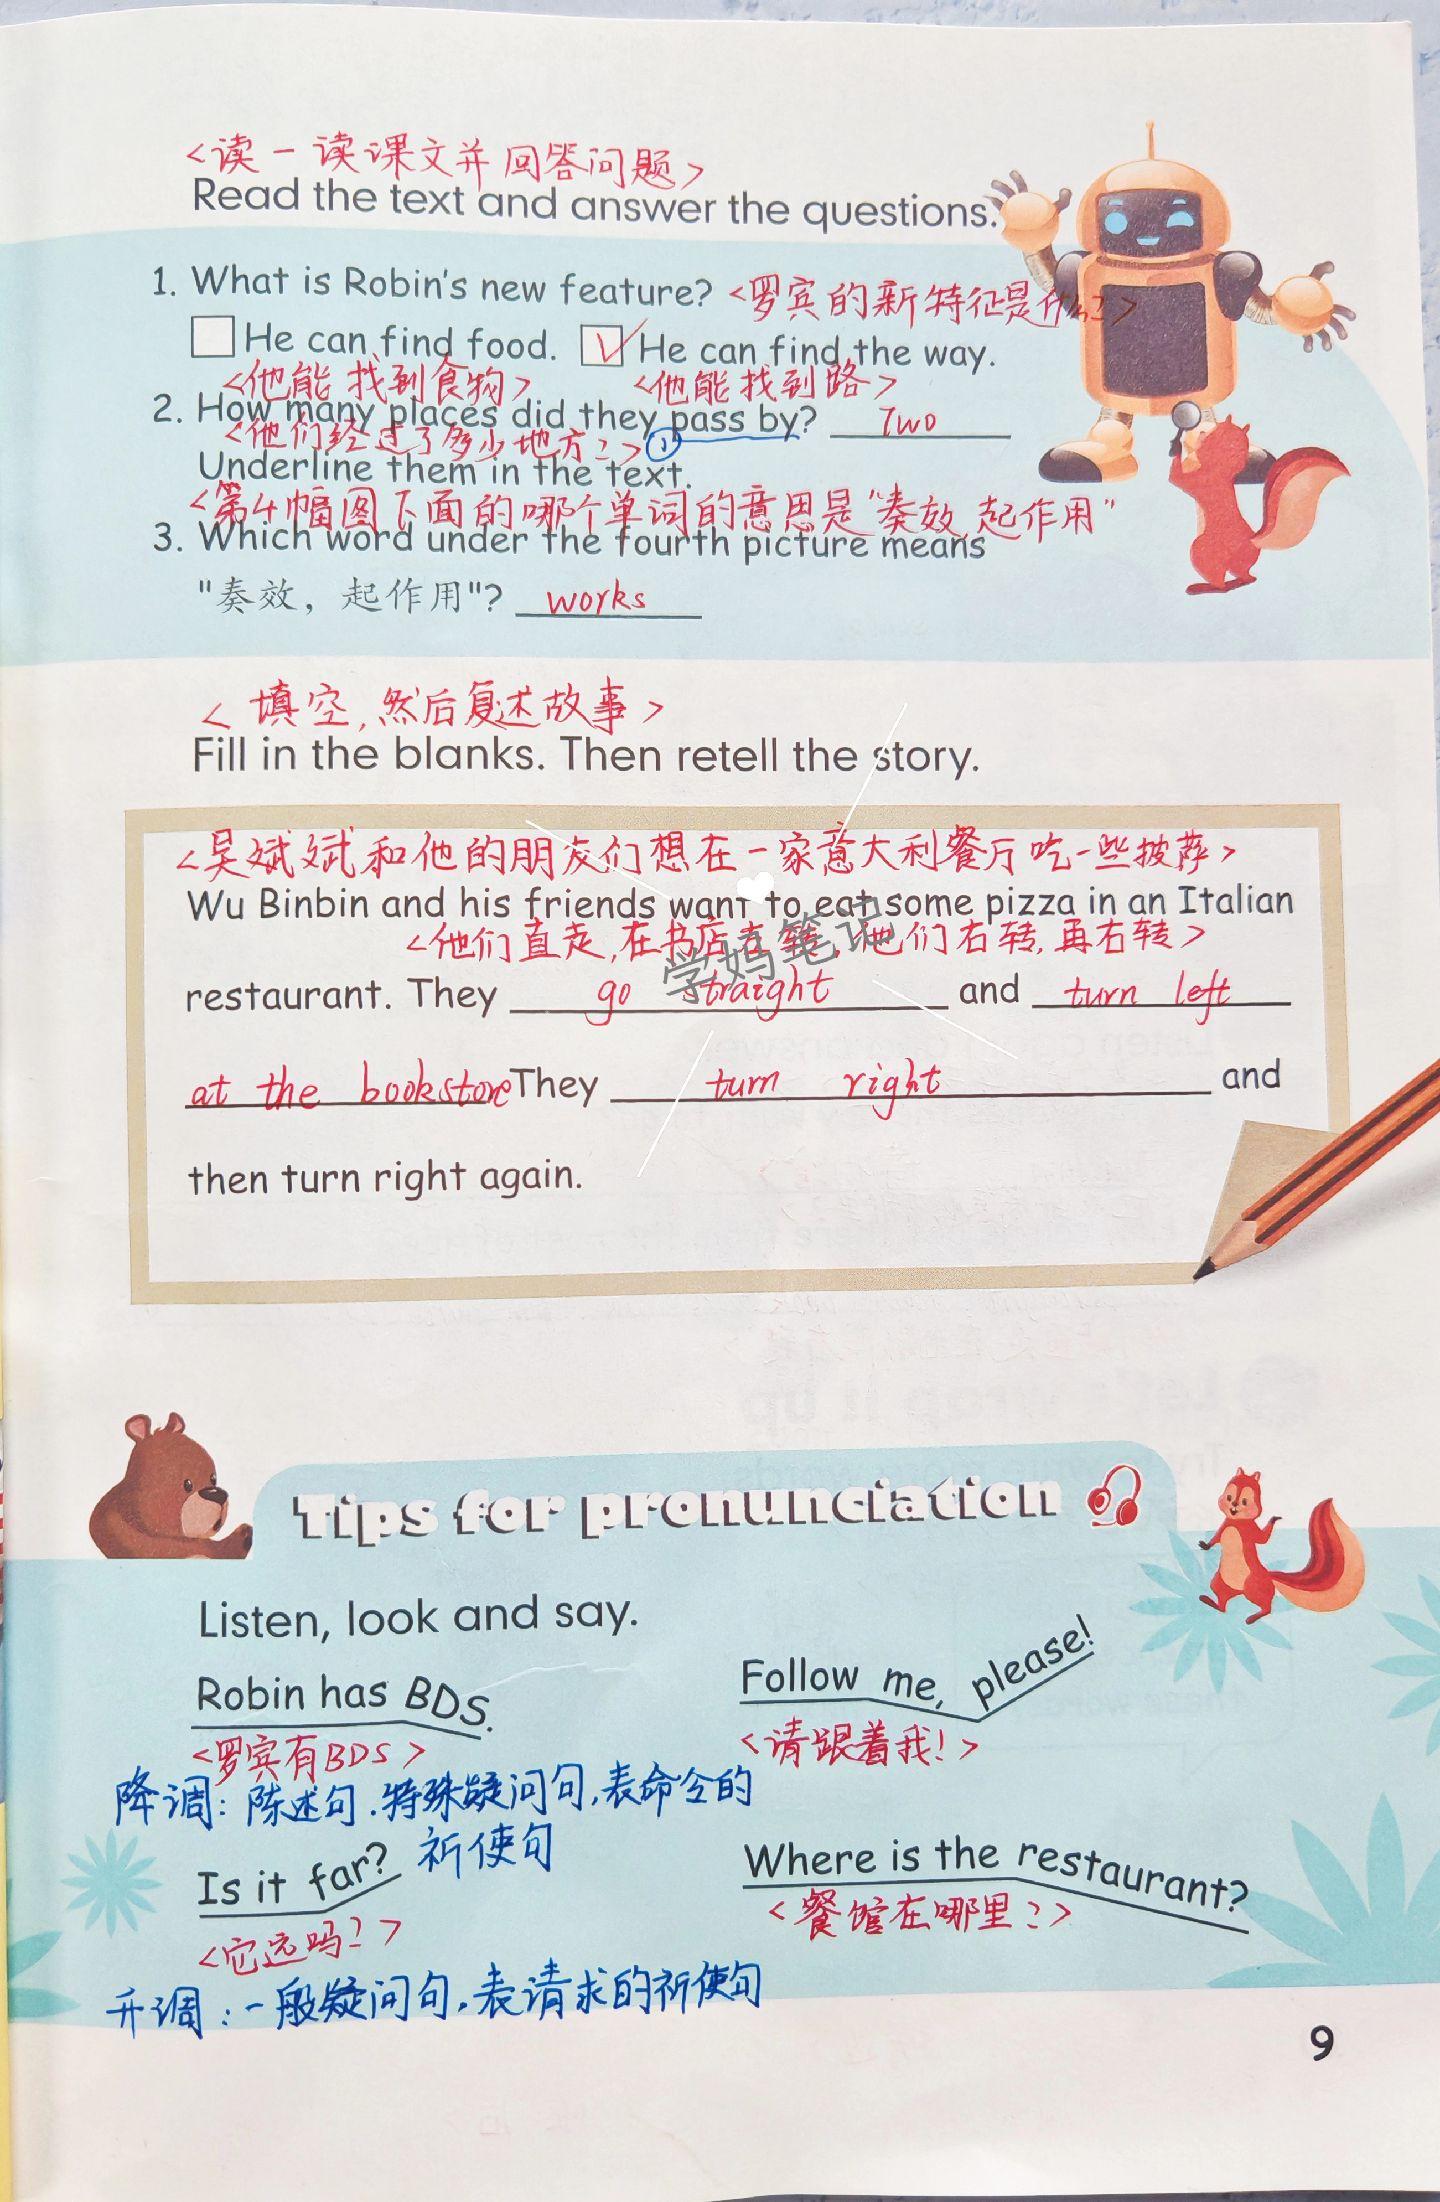 <读一读课文并回答问题>
Read the text and answer the questions.
1. What is Robin's new feature? <罗宾的新特征是什么?>
He can find food. ✓ He can find the way.
<他能找到食物> <他能找到路>
2. How many places did they pass by? Two
<他们经过了多少地方?> ①
Underline them in the text.
<第4幅图下面的哪个单词的意思是"奏效,起作用"
3. Which word under the fourth picture means
"奏效，起作用"? works
<填空,然后复述故事>
Fill in the blanks. Then retell the story.
<吴斌斌和他的朋友们想在一家意大利餐厅吃一些披萨>
Wu Binbin and his friends want to eat some pizza in an Italian
<他们直走,在书店左转,他们右转,再右转>
学妈笔记
restaurant. They go straight and turn left
at the bookstore They turn right and
then turn right again.
Tips for pronunciation
Listen, look and say.
Robin has BDS. Follow me, please!
<罗宾有BDS> <请跟着我!>
降调: 陈述句.特殊疑问句,表命令的
祈使句
Is it far? Where is the restaurant?
<它远吗?> <餐馆在哪里?>
升调:一般疑问句.表请求的祈使句
9